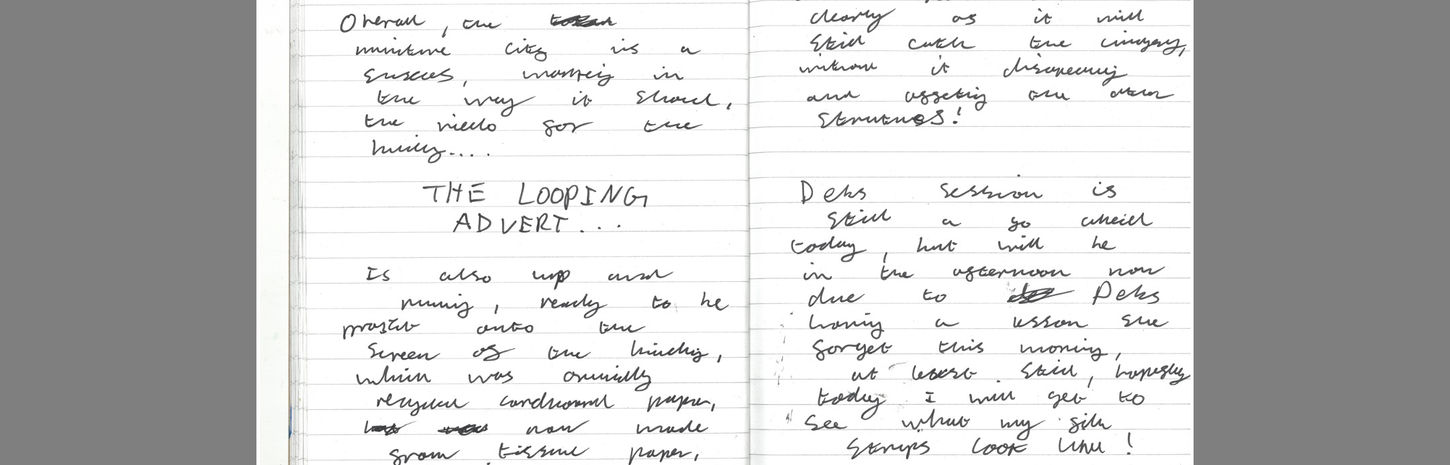 Overall, the
miniture city is a
sucess, working in
the way it should,
the video for the
THE LOOPING
ADVERT...
Is also up and
runing, ready to be
onto the
screen of the building,
which was
recycled cardboard paper,
now made
from tissue paper,
clearly as it will
still catch the
without it
and the other
Debs session is
still a go
today, but will be
in the afternoon now
due to Debs
having a lesson she
forget this morning,
at least. Still, hopefully
today I will get to
see what my silk
strips look like!